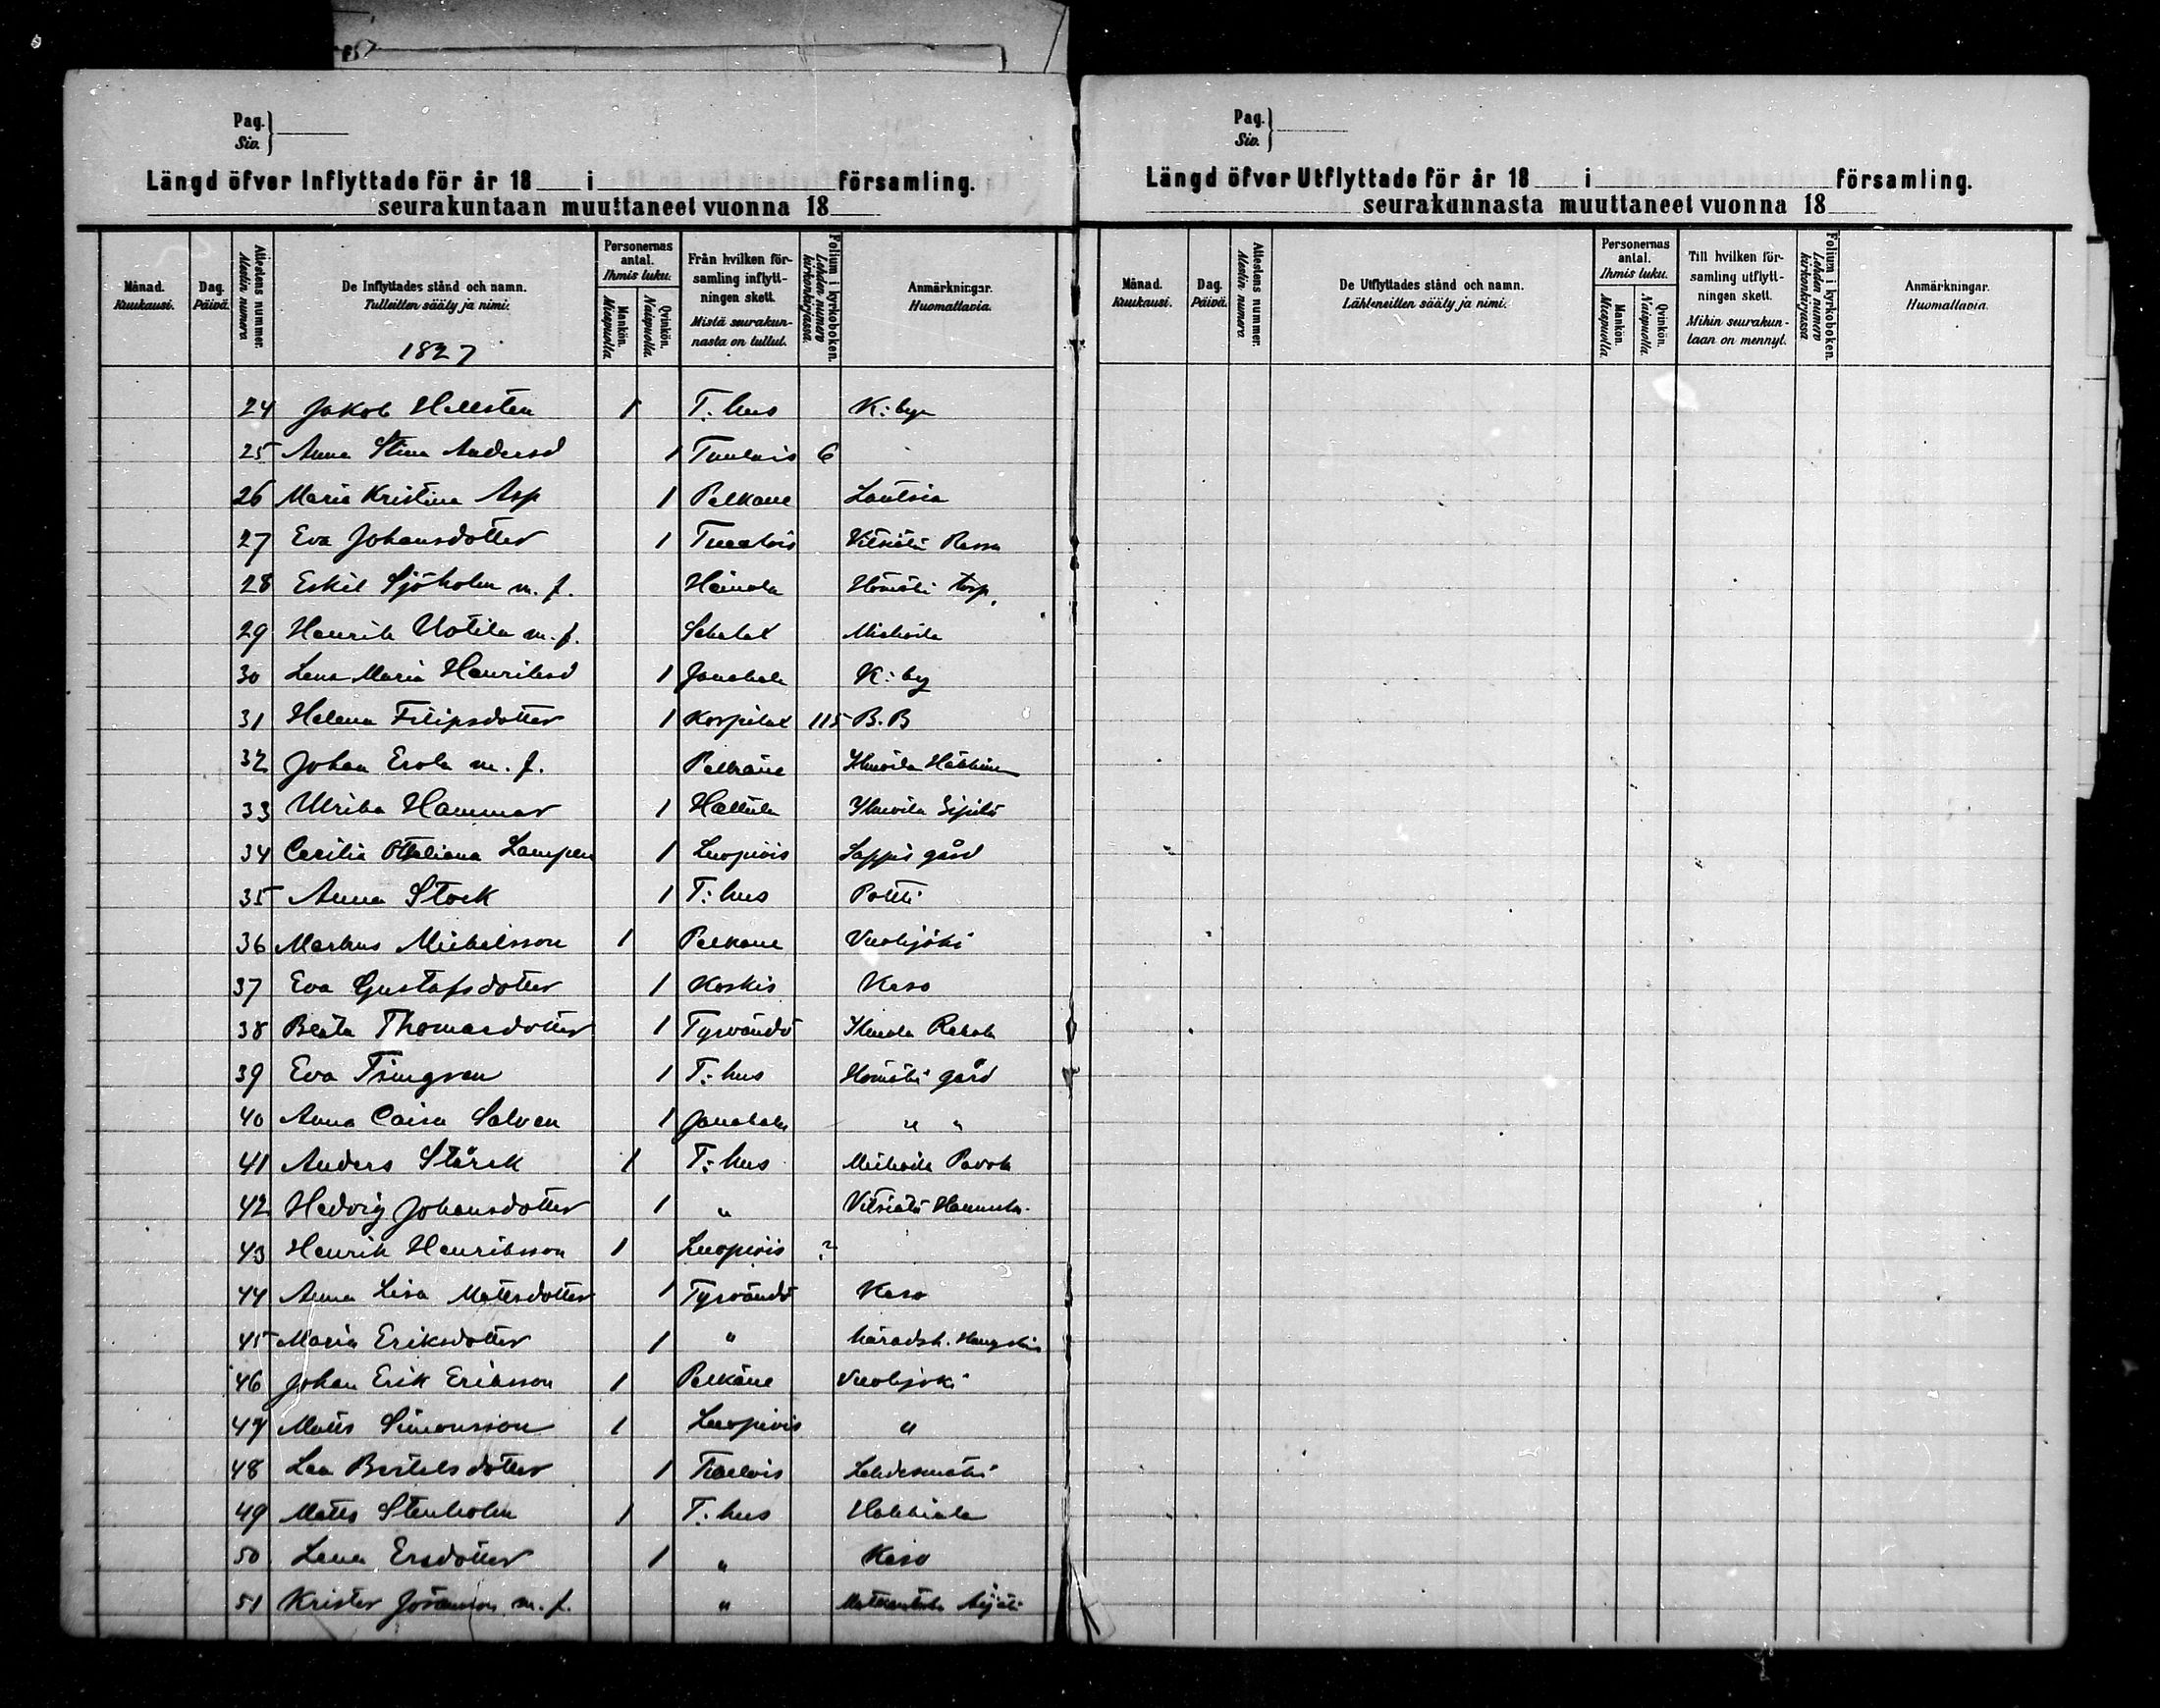 Pag.
Siv.
Längd öfver Inflyttade för år 18 i församling.
seurakuntaan muuttaneet vuonna 18
Månad. Kuukausi.
Dag. Päivä.
Attestens nummer. Atestin numero
De Inflyttades stånd och namn.
Tulleitten sääty ja nimi.
1827
Personernas antal.
Ihmis luku.
Mankön. Miespuolia
Qvinkön. Naispuolia
Från hvilken församling inflyttningen skett.
Mistä seurakunnasta on tullut.
Folium i kyrkoboken. Lehden numero kirkonkirjassa.
Anmärkningar.
Huomattavia.
24 Jakob Hellsten 1 T:hus K:by
25 Anna Stina Andersd 1 Tuulois 6
26 Maria Kristina Asp 1 Pelkäne Lautsia
27 Eva Johansdotter 1 Tuulois Vitsiälä Rassa
28 Eskil Sjöholm m. f. Heinola Hömäki torp.
29 Henrik Uotila m. f. Sahalax Miehoila
30 Lena Maria Henriksd 1 Janakala K:by
31 Helena Filipsdotter 1 Korpilax 115 B. B
32 Johan Erola m. f. Pelkäne Ilmoila
33 Ulrika Hammar 1 Hattula Ilmoila Sipilä
34 Cecilia Ottiliana Lampen 1 Luopiois Lappis gård
35 Anna Stock 1 T:hus Potti
36 Markus Michelsson 1 Pelkäne Vuolijoki
37 Eva Gustafsdotter 1 Koskis Keso
38 Beata Thomasdotter 1 Tyrvändö Ilmola Rekola
39 Eva Tsingren 1 T:hus Hömäki gård
40 Anna Caisa Salven 1 Janakala " "
41 Anders Stårck 1 T:hus Miehoila Pavola
42 Hedvig Johansdotter 1 " Vitsiälä Hannula
43 Henrik Henriksson 1 Luopiois ?
44 Anna Lisa Mattsdotter 1 Tyrvändö Keso
45 Maria Eriksdotter 1 " häradsh.
46 Johan Erik Eriksson 1 Pelkäne Vuolijoki
47 Matts Simonsson 1 Luopiois "
48 Lea Bertelsdotter 1 Tuulois Lehdesmäki
49 Matts Stenholm 1 T:hus Hakkiala
50 Lena Ersdotter 1 " Keso
51 Krister Göransson m. f. "
Pag.
Siv.
Längd öfver Utflyttade för år 18 i församling.
seurakunnasta muuttaneet vuonna 18
Månad. Kuukausi.
Dag. Päivä.
Attestens nummer. Atestin numero
De Utflyttades stånd och namn.
Lähteneitten sääty ja nimi.
Personernas antal.
Ihmis luku.
Mankön. Miespuolia
Qvinkön. Naispuolia
Till hvilken församling utflyttningen skett.
Mihin seurakuntaan on mennyt.
Folium i kyrkoboken. Lehden numero kirkonkirjassa
Anmärkningar.
Huomattavia.